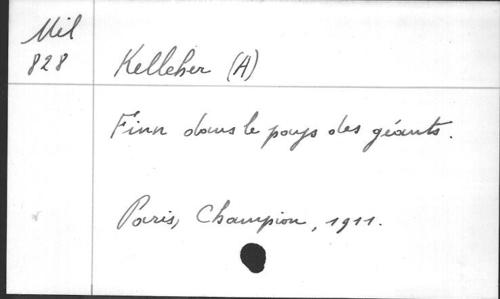 Mil
828
Kelleher (A)
Finn dans le pays des géants.
Paris, Champion, 1911.